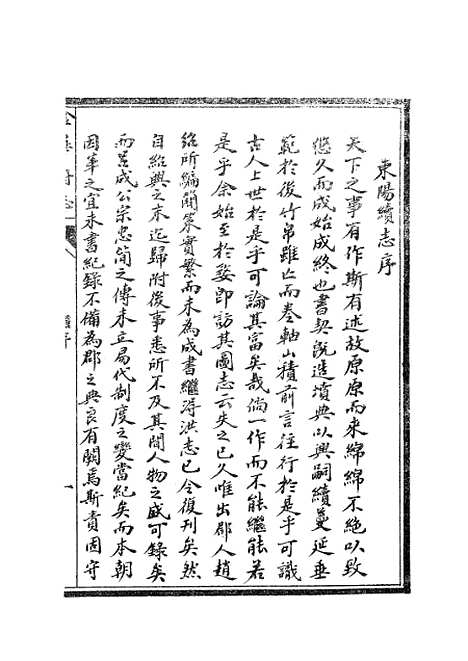 東陽續志序
天下之事有作斯有述故原原而来綿綿不絶以致
悠久而成始成終也書契既造墳典以興嗣續蔓延垂
範於後竹帛雖亡而卷軸山積前言徃行於是乎可識
古人上世於是乎可論其富矣哉倘一作而不能繼能若
是乎余始至於婺即訪其圖志云失之已久唯出郡人趙
所編簡策實繁而未為成書繼得洪志已令復刊矣然
自紹興之末迄歸附後事悉所不及其間人物之盛可錄矣
而若成公宗忠簡之傳未立局代制度之變當紀矣而本朝
因革之宜未書紀錄不備為郡之典良有闕焉斯責固守
序
一